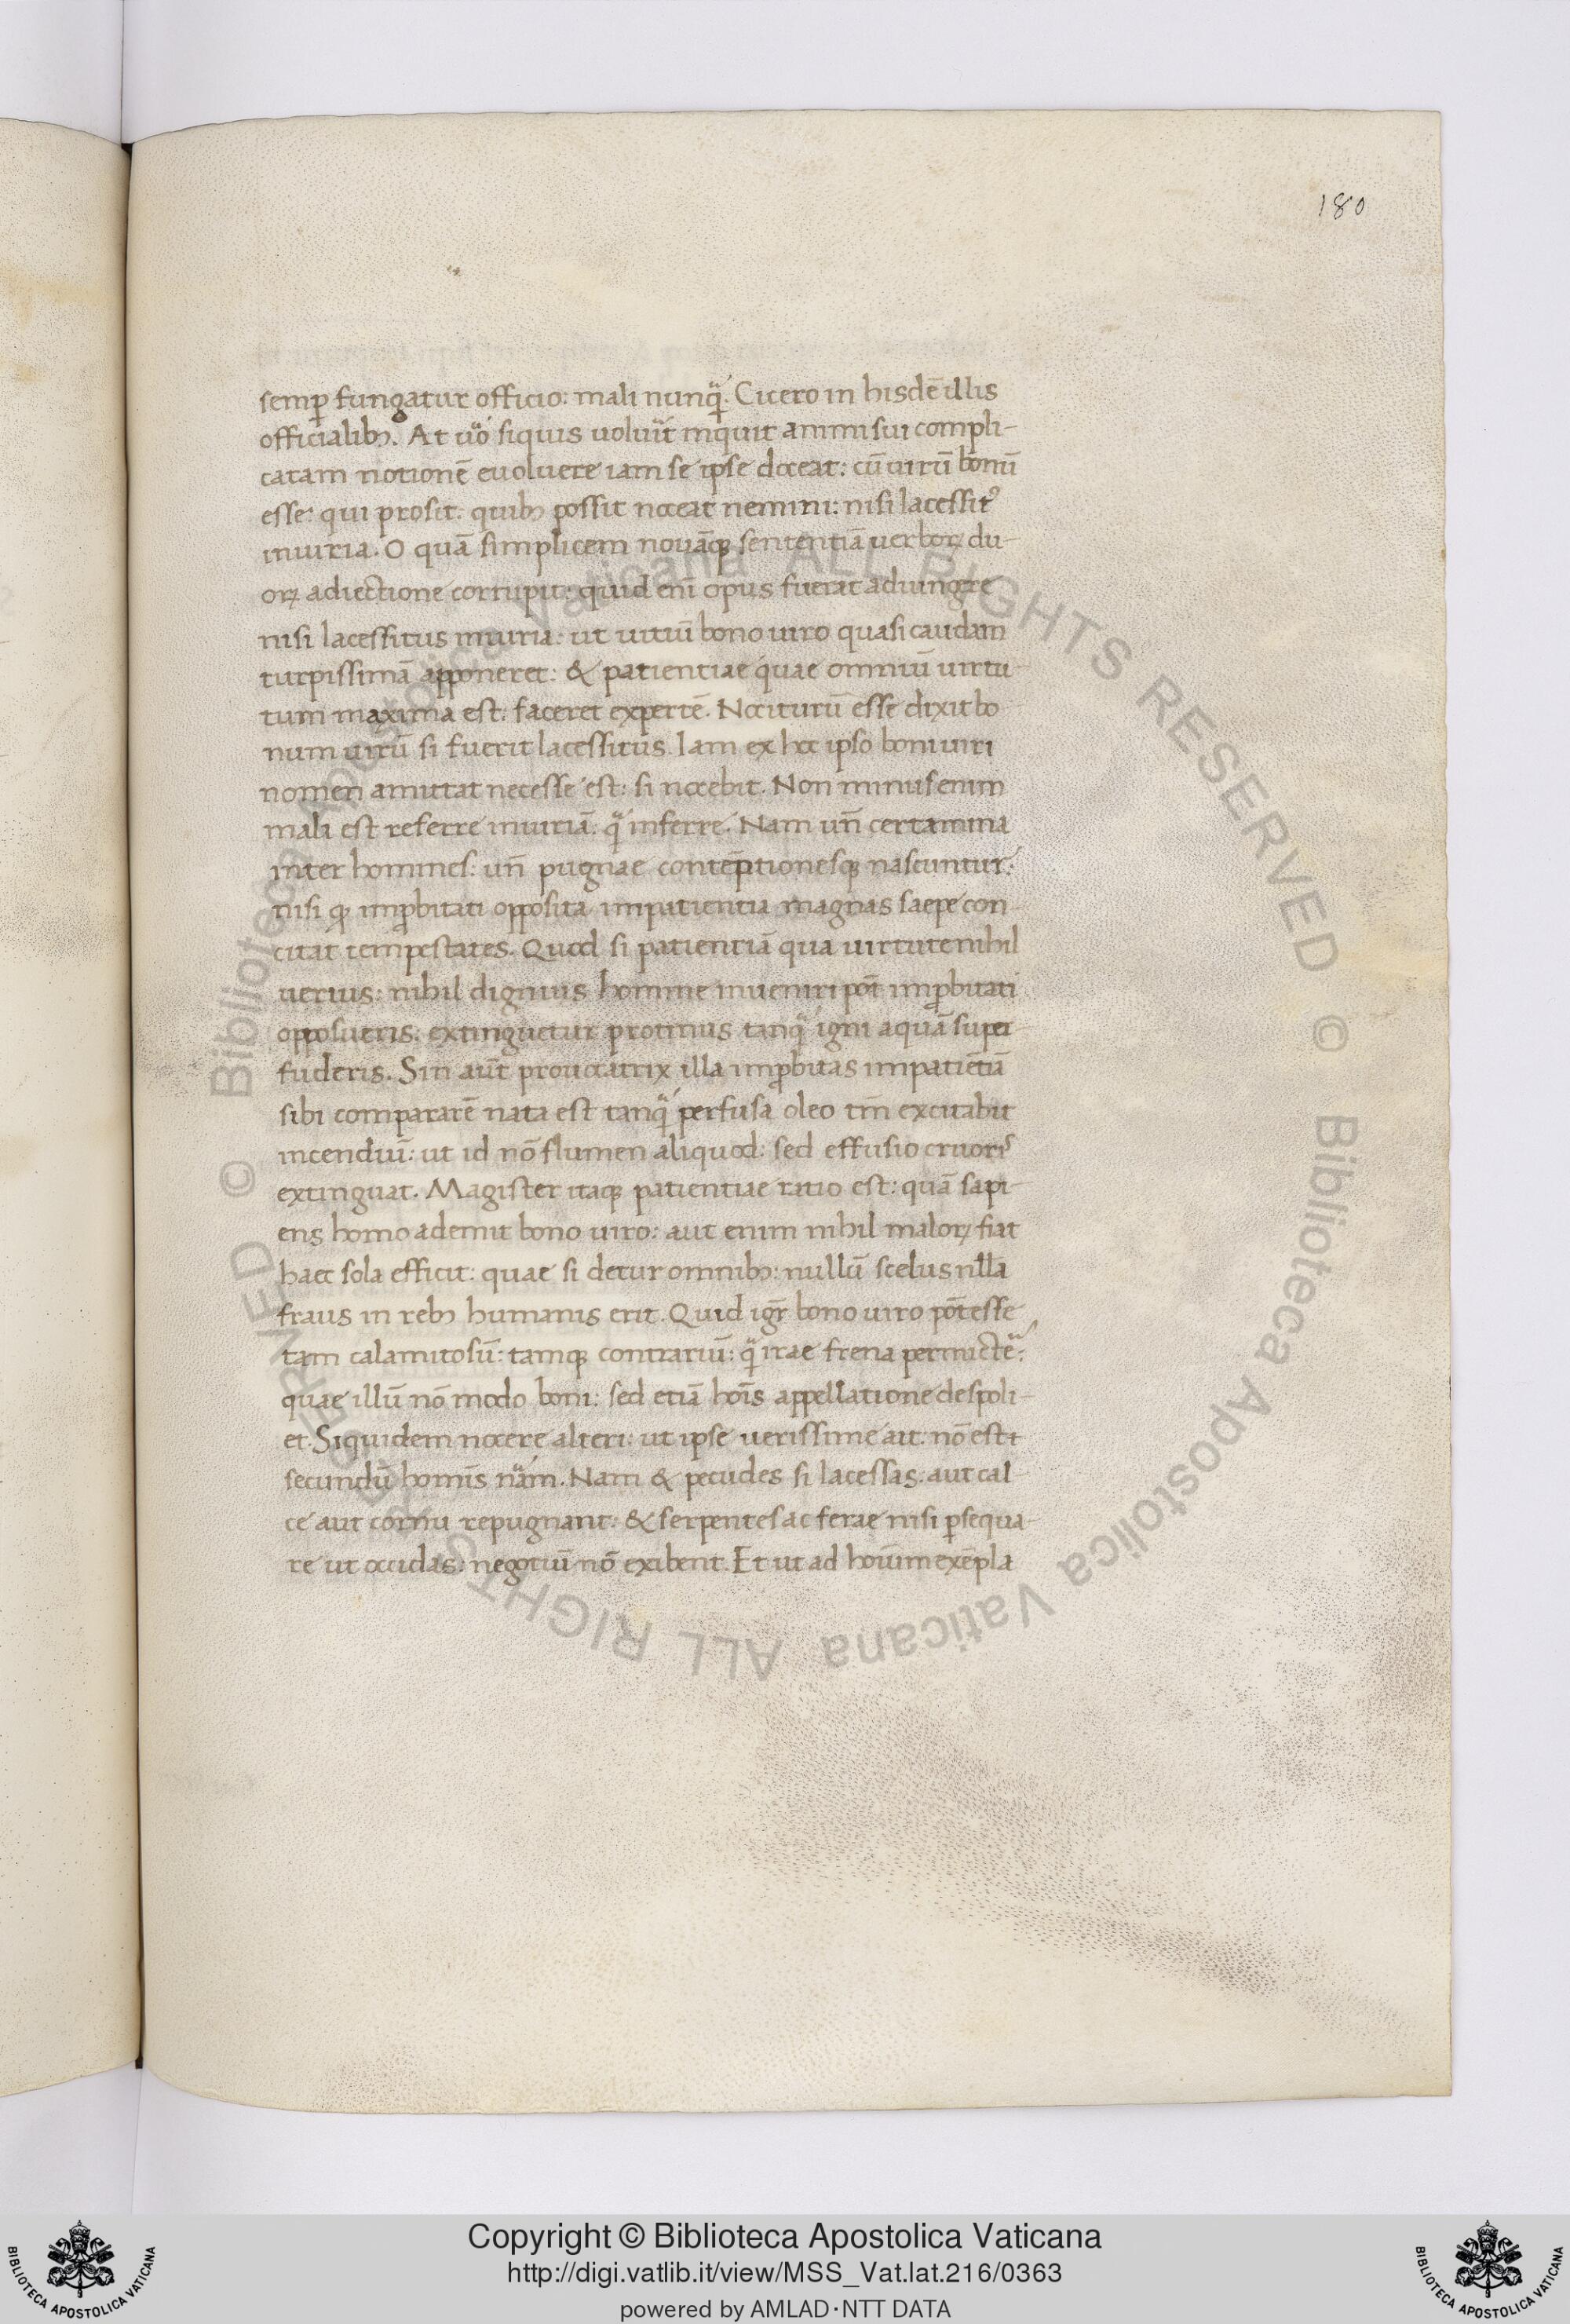 180
semꝑ fungatur officio: mali nunq̈. Cicero in hisdē illis
officialibꝫ. At uö siquis uoluit̄ inquit animi sui compli-
catam notionē euoluere iam se ipse doceat: eū uirū bonū
esse: qui prosit: quibꝫ possit noceat nemini: nisi lacessitꝰ
iniuria. O quā simplicem nouāqꝫ sententiā uerboꝝ du-
oꝝ adiectione corrupit: quid enī opus fuerat adiungere
nisi lacessitus iniuria: ut uitiū bono uiro quasi caudam
turpissimā apponeret: & patientiae quae omniū uirtu-
tum maxima est: faceret expertē. Nociturū esse dixit bo
num uirū si fuerit lacessitus. Iam ex hoc ipso boni uiri
nomen amittat necesse est: si nocebit. Non minus enim
mali est referre iniuriā: q̈ inferre. Nam un̄ certamina
inter homines: un̄ pugnae contēptionesqꝫ nascuntur:
nisi qꝫ imꝓbitati opposita impatientia magnas saepe con-
citat tempestates. Quod si patientiā qua uirtute nihil
uerius: nihil dignius homine inueniri pōt imꝓbitati
opposueris: extinguetur protinus tanq̈ igni aquā super
fuderis. Sin aut̄ prouocatrix illa imꝓbitas impatiētiā
sibi compararē nata est tanq̈ perfusa oleo tm̄ excitabit
incendiū: ut id nō flumen aliquod: sed effusio cruorꝭ
extinguat. Magister itaqꝫ patientiae ratio est: quā sapi-
ens homo ademit bono uiro: aut enim nihil maloꝝ fiat
haec sola efficit: quae si detur omnibꝫ: nullū scelus nlla
fraus in rebꝫ humanis erit. Quid igr̄ bono uiro pōt esse
tam calamitosū: tamqꝫ contrariū: q̈ irae frena permictë:
quae illū nō modo boni: sed etiā hoīs appellatione despoli-
et. Siquidem nocere alteri: ut ipse uerissime ait: nō est
secundū hominis näm. Nam & pecudes si lacessas: aut cal
ce aut cornu repugnant: & serpentes ac ferae nisi ꝑsequa-
re ut occidas: negotiū nō exibent. Et ut ad hoium exēpla
© Biblioteca Apostolica Vaticana ALL RIGHTS RESERVED
© Biblioteca Apostolica Vaticana ALL RIGHTS RESERVED
Copyright © Biblioteca Apostolica Vaticana
http://digi.vatlib.it/view/MSS_Vat.lat.216/0363
powered by AMLAD·NTT DATA
BIBLIOTECA APOSTOLICA VATICANA
BIBLIOTECA APOSTOLICA VATICANA